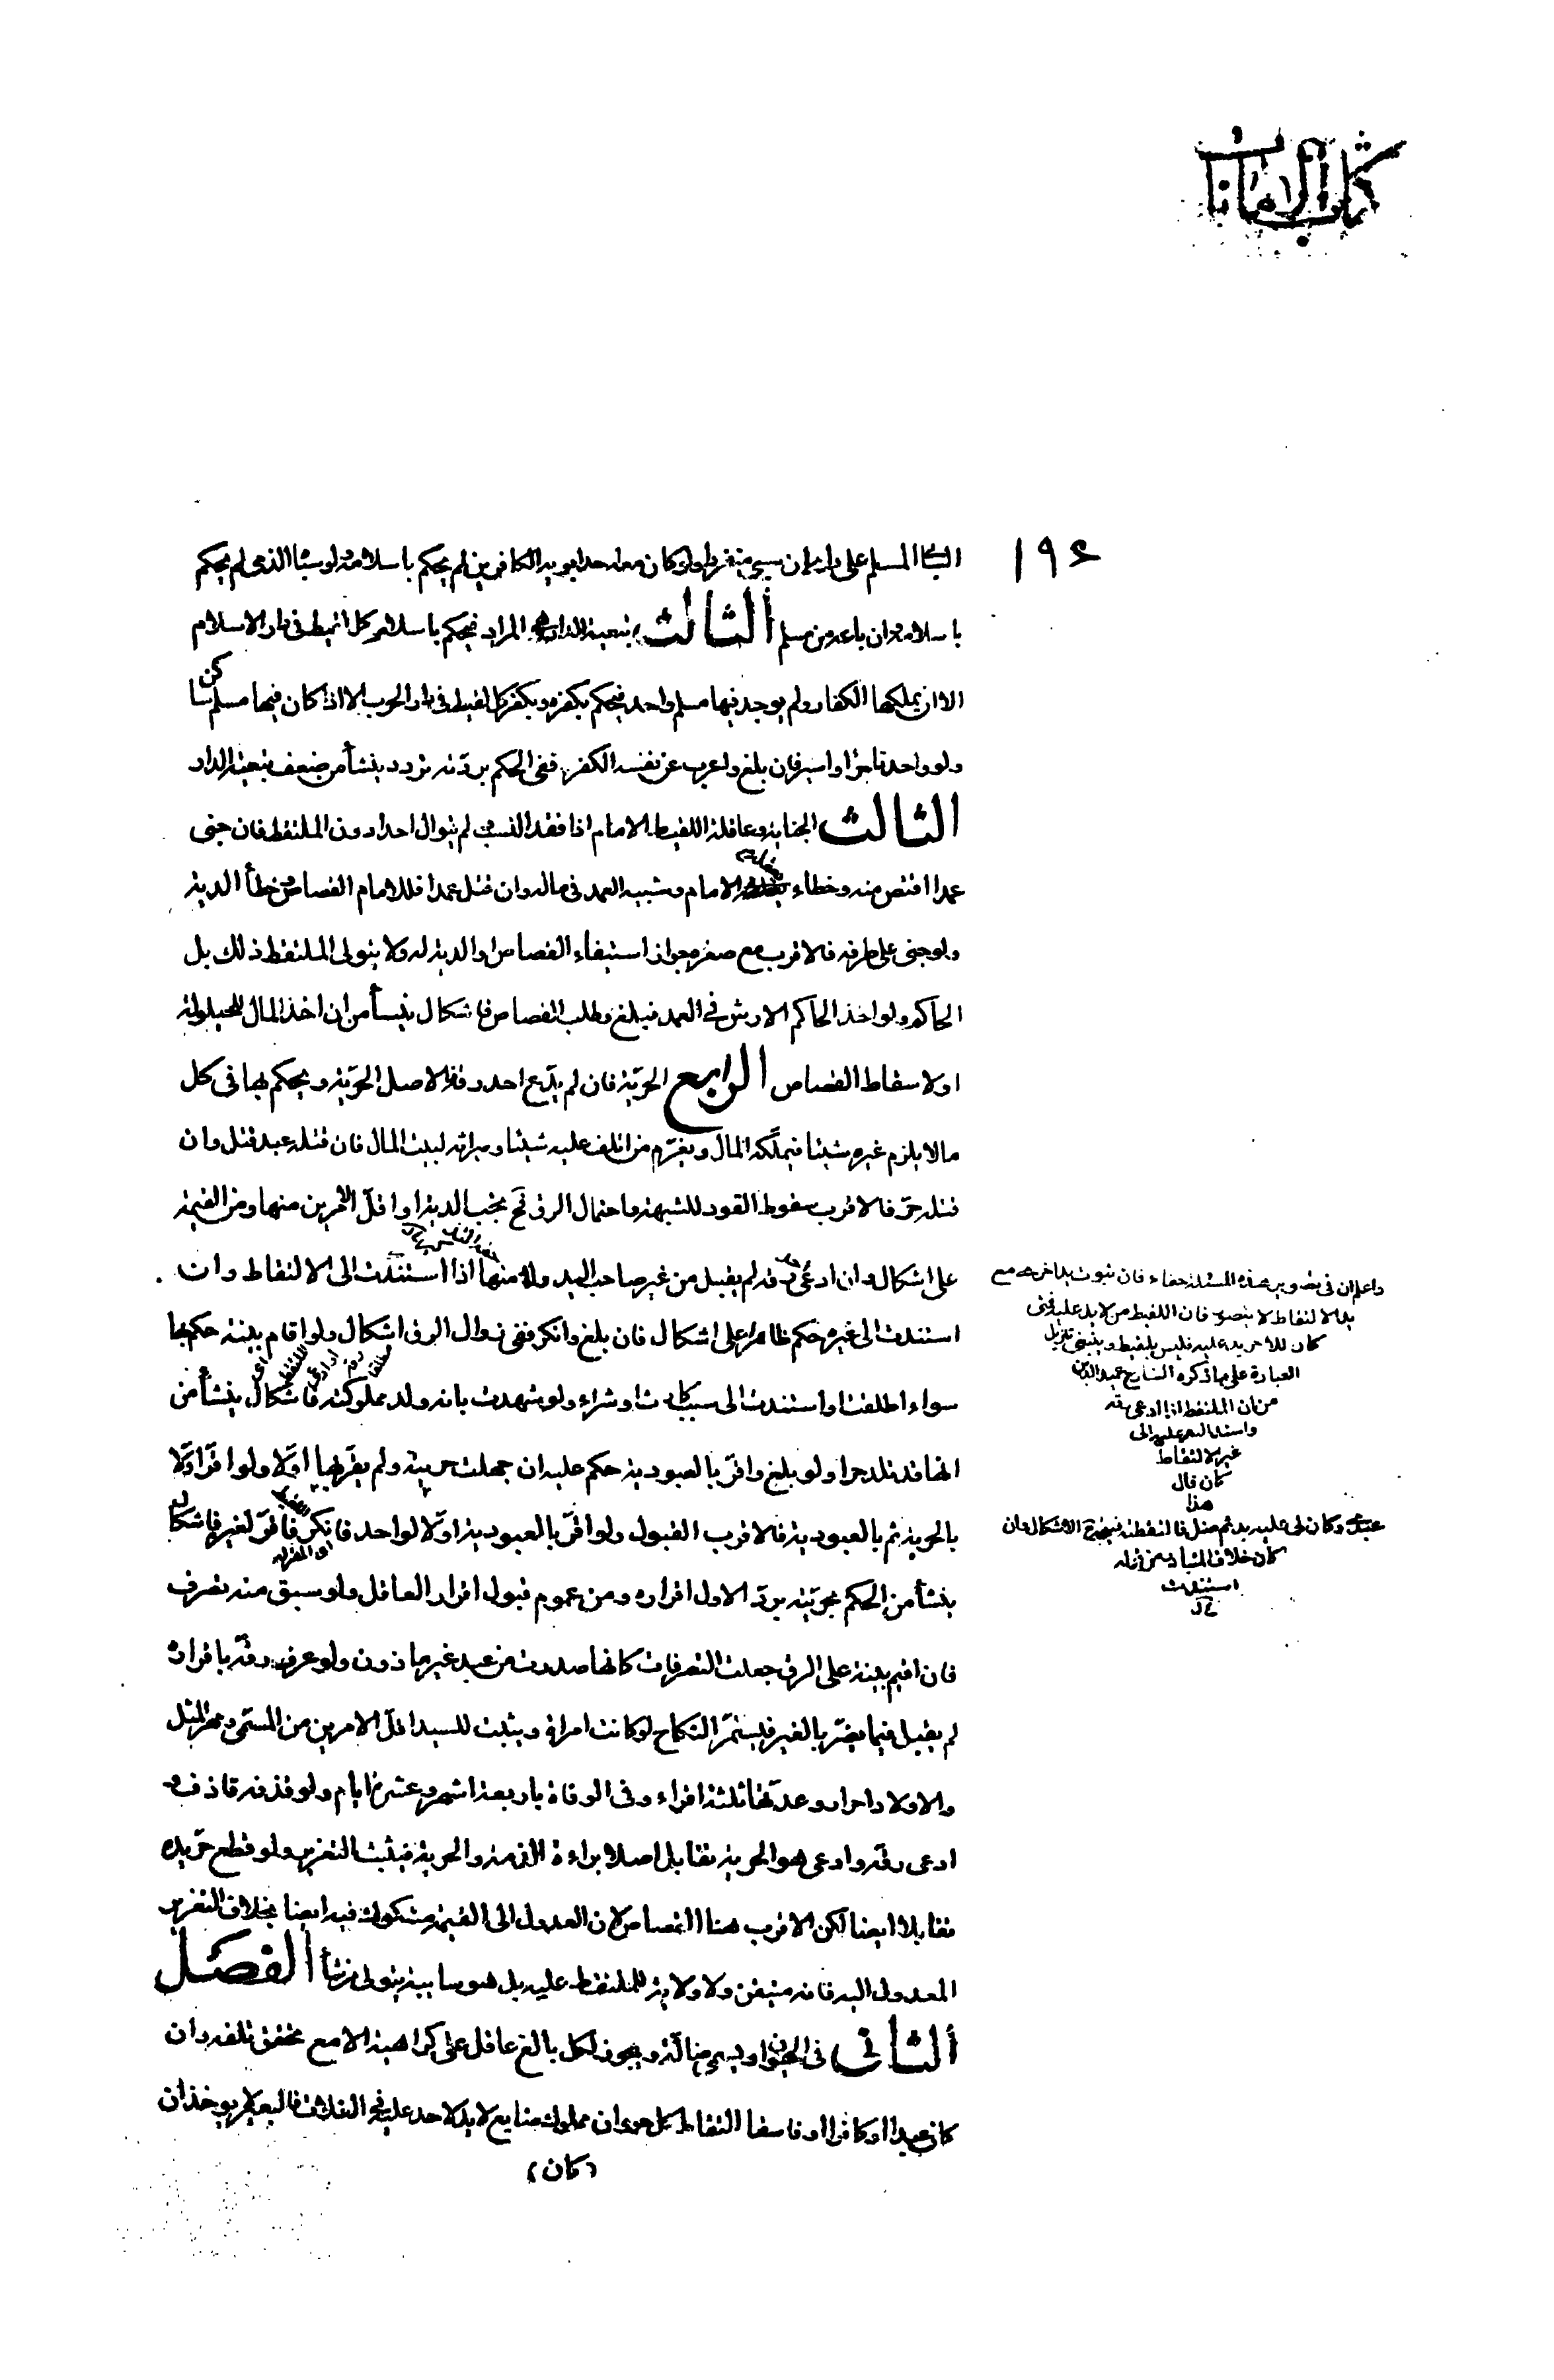 كتاب الامانات
١٩٤
السابي المسلم على راى ان سبى منفردا ولو كان معه احد ابويه الكافرين لم يحكم باسلامه ولو سباه الذمى لم يحكم
باسلامه وان باعه من مسلم الثالث تبعية الدار وهي المراد فيحكم باسلام كل لقيط فى دار الاسلام
الا ان يملكها الكفار ولم يوجد فيها مسلم واحد فيحكم بكفره وبكفر كل لقيط فى دار الحرب الا اذا كان فيها مسلم ساكن
ولو واحد تاجرا او اسير فان بلغ واعرب عن نفسه الكفر ففى الحكم بردته تردد ينشأ من ضعف تبعية الدار
الثالث الجناية وعاقلة اللقيط الامام اذا فقد النسب لم يتوال احدا دون الملتقط فان جنى
عمدا اقتص منه وخطاء يعقله الامام وشبيه العمد فى ماله وان قتل عمدا فللامام القصاص وخطأ الدية
ولو جنى على طرفه فالاقرب مع صغره جواز استيفاء القصاص او الدية له ولا يتولى الملتقط ذلك بل
الحاكم ولو اخذ الحاكم الارش فى العمد فبلغ وطلب القصاص فاشكال ينشأ من ان اخذ المال للحيلولة
او لاسقاط القصاص الرابع الحرية فان لم يدّع احد رقه فالاصل الحرّية ويحكم بها فى كل
مالا يلزم غيره شيئا فيملّكه المال ويغرّم من اتلف عليه شيئا وميراثه لبيت المال فان قتله عبد قتل وان
قتله حرّ فالاقرب سقوط القود للشبهة واحتمال الرق فح يجب الدية او اقلّ الامرين منها ومن القيمة
على اشكال وان ادعى رقه لم يقبل من غير صاحب اليد ولا منها اذا استندت الى الالتقاط وان
استندت الى غيره حكم ظاهرا على اشكال فان بلغ وانكر ففى زوال الرق اشكال ولو اقام بينة حكم بها
سواء اطلقت او استندت الى سبب كارث او شراء ولو شهدت بانه ولد مملوكته فاشكال ينشأ من
انها قد تلد حرا ولو بلغ واقرّ بالعبودية حكم عليه ان جهلت حريته ولم يقرّ بها اولا ولو اقرّ اولا
بالحرية ثم بالعبودية فالاقرب القبول ولو اقرّ بالعبودية اولا لواحد فانكر فاقرّ لغيره فاشكال
ينشأ من الحكم بحريته بردّ الاول اقراره ومن عموم قبول اقرار العاقل ولو سبق منه تصرف
فان اقيم بينة على الرق جعلت التصرفات كانها صدرت من عبد غير ماذون ولو عرف رقه باقراره
لم يقبل فيما يضرّ بالغير فيستمرّ النكاح لو كانت امراة ويثبت للسيد اقلّ الامرين من المسمى ومهر المثل
والاولاد احرار وعدتها ثلثة اقراء وفى الوفاة باربعة اشهر وعشرة ايام ولو قذفه قاذف و
ادعى رقه وادعى هو الحرية تقابل اصلا براءة الذمة والحرية فيثبت التعزير ولو قطع حرّ يده
تقابلا ايضا لكن الاقرب هنا القصاص لان العدول الى القيمة مشكوك فيه ايضا بخلاف التعزير
المعدول اليه فانه متيقن ولا ولاية للملتقط عليه بل هو سايبة يتولى من شأ الفصل
الثانى فى الحيوان ويسمى ضالة ويجوز لكل بالغ عاقل على كراهية الا مع تحقق تلفه وان
كان عبدا او كافرا او فاسقا التقاط كل حيوان مملوك ضايع لا يد لاحد عليه فى الفلاة فالبعير لا يؤخذ ان
(كان)
واعلم ان فى تصوير هذه المسئلة خفاء فان ثبوت يد اخرى مع
يد الالتقاط لا يتصور فان اللقيط من لا يد عليه فمتى
كان للاخر يد عليه فليس بلقيط وينبغى تنزيل
العبارة على ما ذكره الشارح عميد الدين
من ان الملتقط اذا ادعى رقه
واسند اليد عليه الى
غير الالتقاط
كان قال
هذا
عبدى وكان لى عليه يد ثم ضل فالتقطته فيتجه الاشكال وان
كان خلاف المتبادر من قوله
استندت